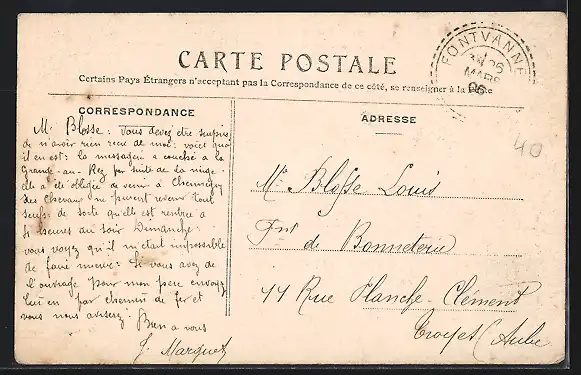 CARTE POSTALE
Certains Pays Étrangers n'acceptant pas la Correspondance de ce côté, se renseigner à la Poste
FONTVANNE
26
MARS
06
CORRESPONDANCE
Mr Blosse : vous devez être surpris
de n'avoir rien recu de moi : voici quoi
il en est : la messagere a couché a la
Grange-au-Rez par suite de la neige :
elle a été obligée de venir a Chennegy
des chevaux ne peuvent revenir tout
seuls : de sorte qu'elle est rentrée a
5 heures au soir Dimanche :
vous voyez qu'il m'etait impossible
de faire mieux : Si vous avez de
l'ouvrage pour mon pere envoyez
lui en par chemin de fer et
vous nous aviserez : Bien a vous
J. Marquet
ADRESSE
40
Mr Blosse Louis
Fnt de Bonneterie
44 Rue Planche-Clément
Troyes (Aube